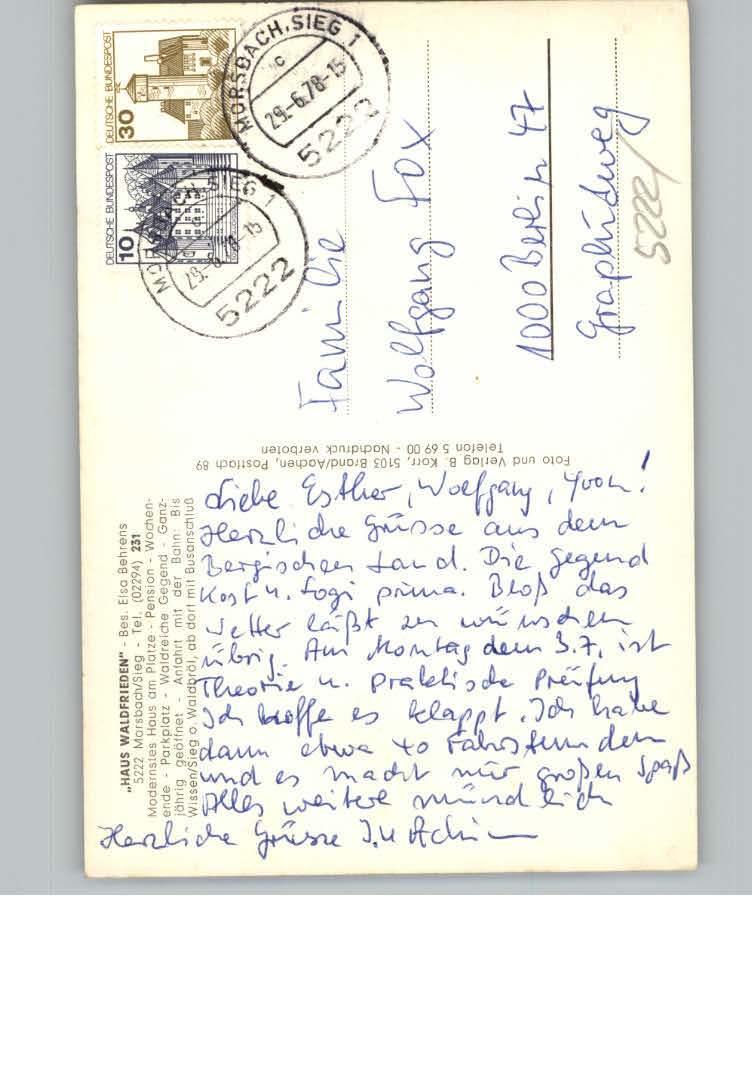 „HAUS WALDFRIEDEN" - Bes. Elsa Behrens
5222 Morsbach/Sieg - Tel. (02294) 231
Modernstes Haus am Platze - Pension - Wochen-
ende - Parkplatz - Waldreiche Gegend - Ganz-
jährig geöffnet - Anfahrt mit der Bahn: Bis
Wissen/Sieg o. Waldbröl, ab dort mit Busanschluß
Foto und Verlag B. Korr, 5103 Brand/Aachen, Postfach 89
Telefon 5 69 00 - Nachdruck verboten
DEUTSCHE BUNDESPOST
30
DEUTSCHE BUNDESPOST
10
MORSBACH, SIEG 1
29.-6.78-15
5222
MORSBACH, SIEG 1
29.-6.78-15
5222
Familie
Wolfgang Fox
1000 Berlin 47
5222
Liebe Esther, Wolfgang, Yvon!
Herzliche Grüsse aus dem
Bergischen Land. Die Gegend
Kost u. Logi prima. Bloß das
Wetter läßt zu wünschen
übrig. Am Montag dem 3.7. ist
Theorie u. praktische Prüfung
Ich hoffe es klappt. Ich habe
dann etwa 40 Fahrstunden
und es macht mir großen Spaß
Alles weitere mündlich
Herzliche Grüsse